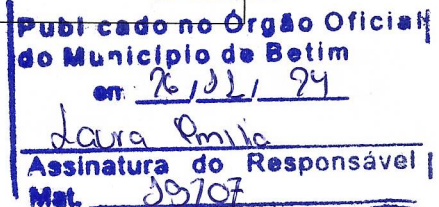 Publicado no Órgão Oficial
do Município de Betim
em 26/12/24
Laura Emilia
Assinatura do Responsável
Mat. 39707